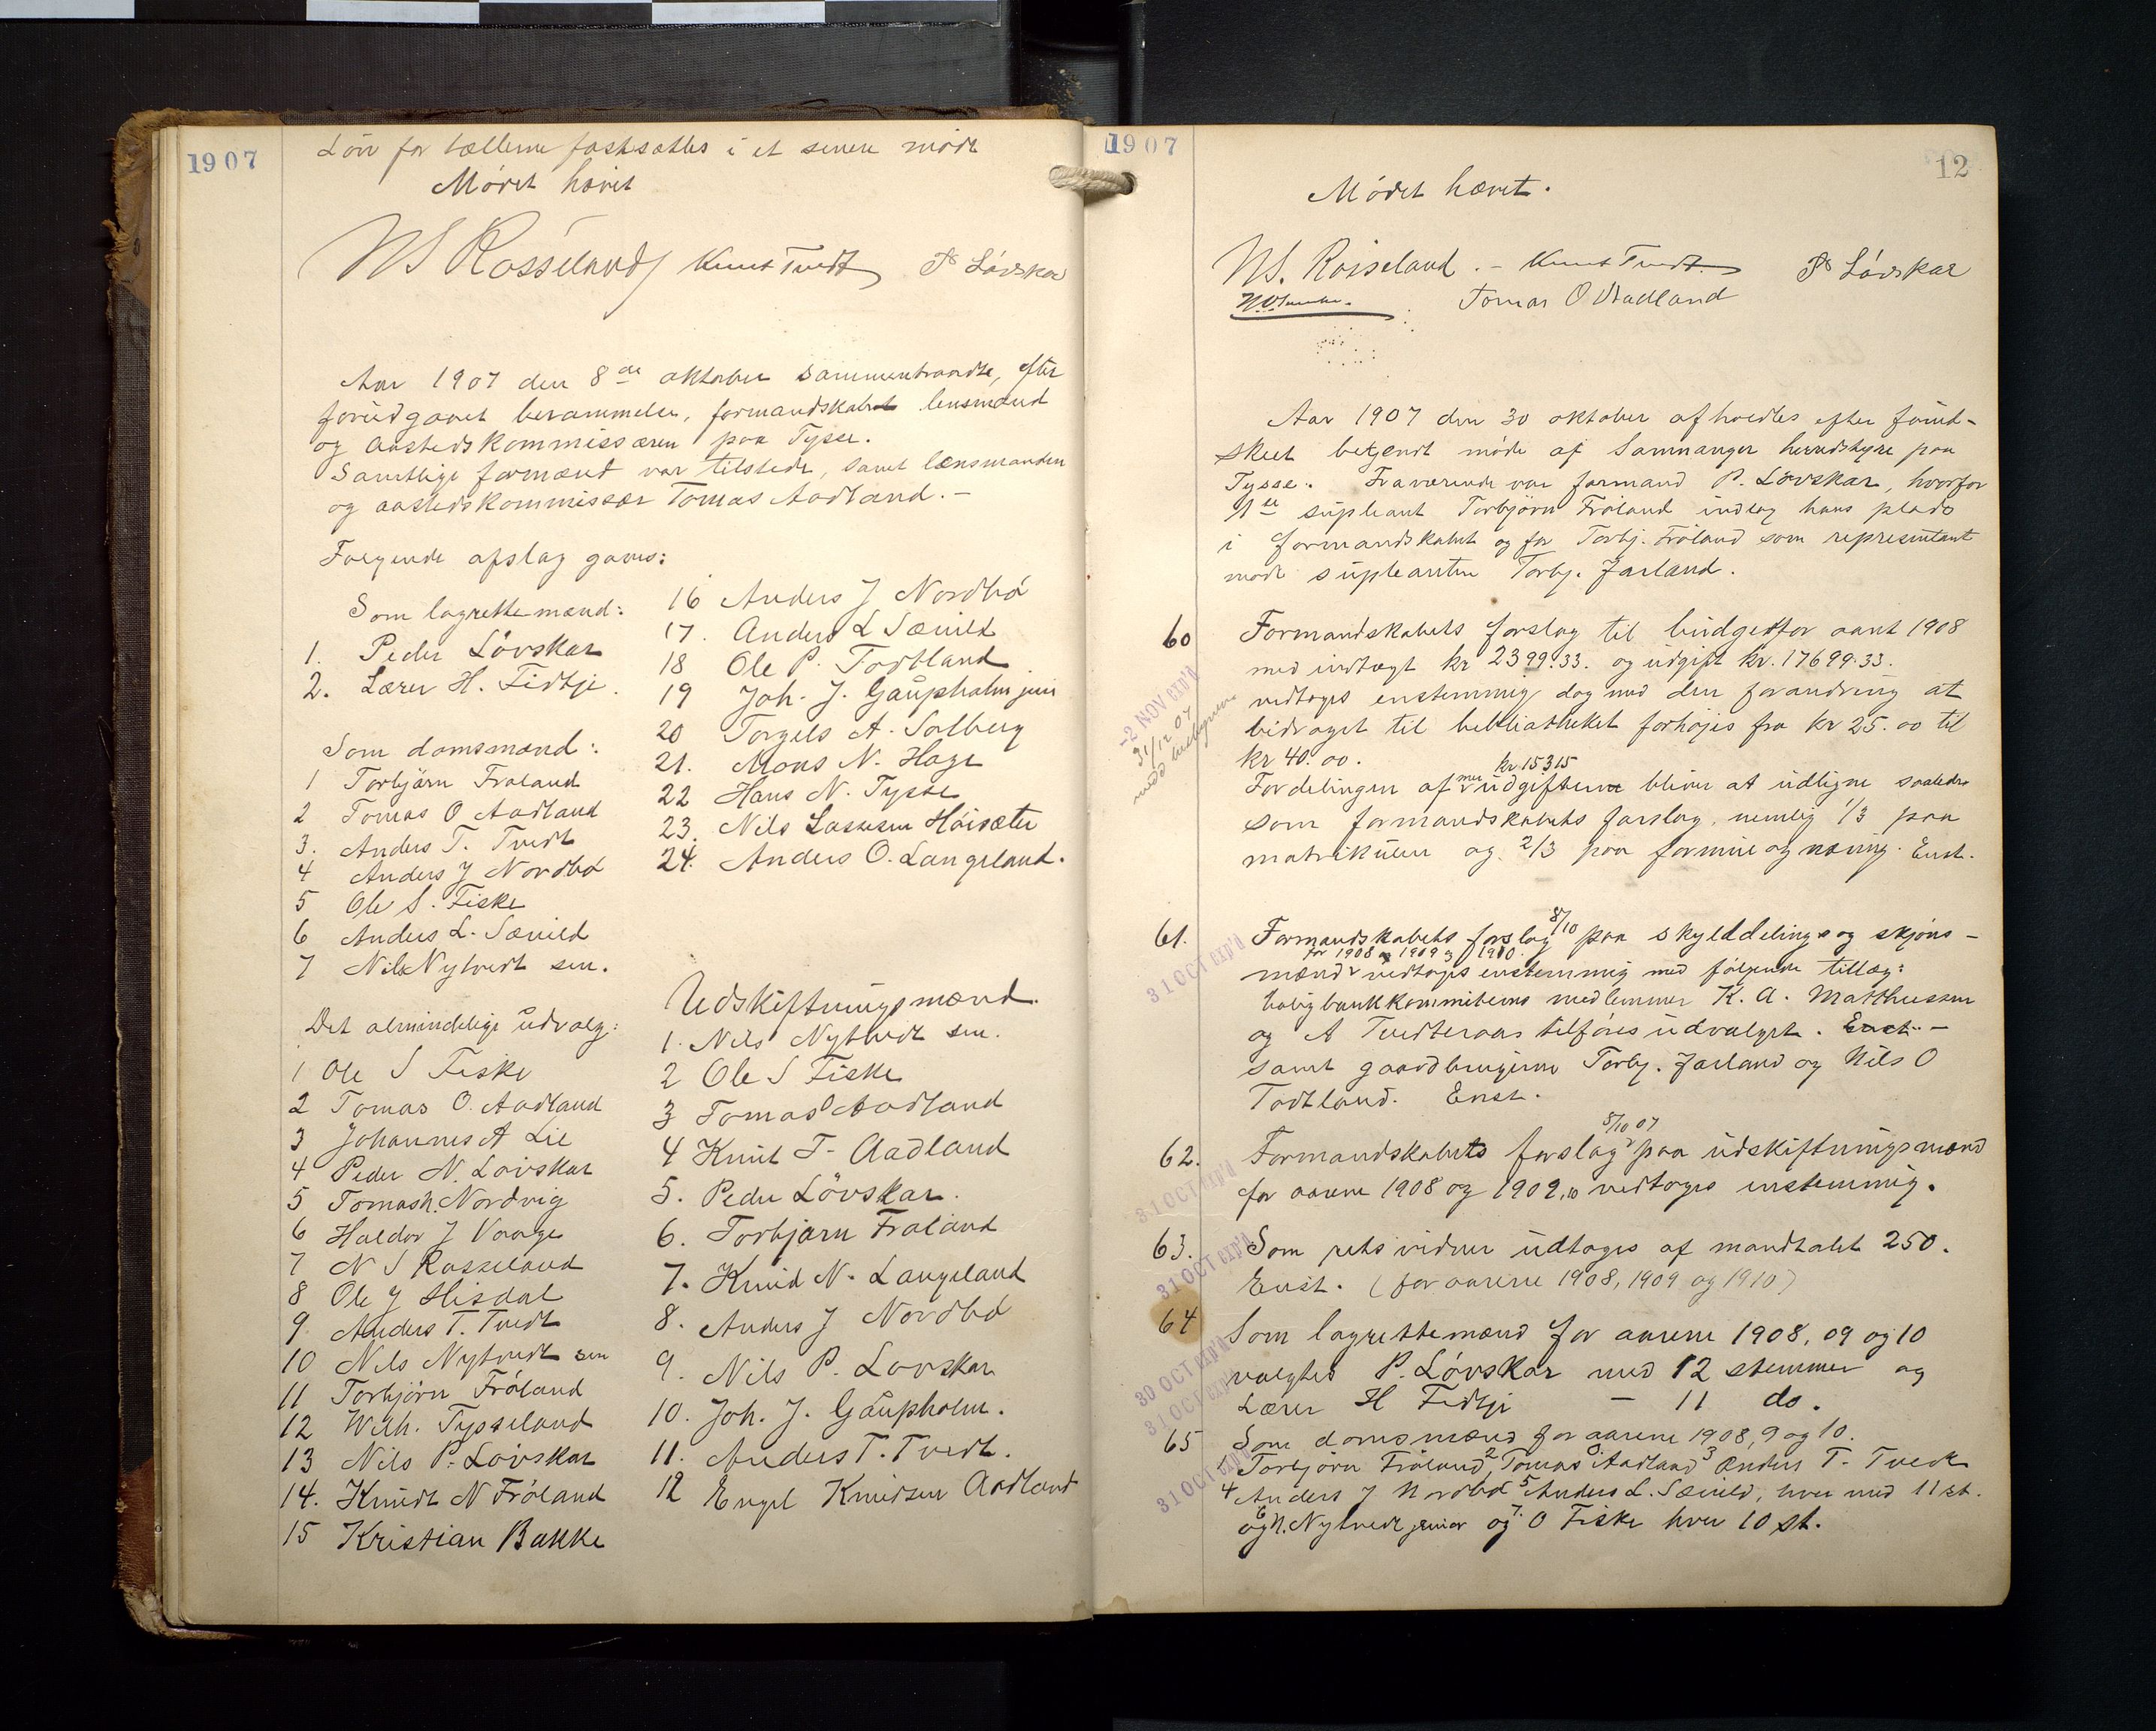 1907
Lön for tællerne fastsattes i et senere møde
Mødet hævet
NS Rosseland Knut Tvedt P Lövskar
Aar 1907 den 8de oktober sammentraadte, efter
forudgaaet berammelse, formandskabet lensmand
og aastedskommissæren paa Tysse.
Samtlige formænd var tilstede, samt lænsmanden
og aastedskommissær Tomas Aadland. –
Følgende afslag gaves:
Som lagrettemænd:
1. Peder Lövskar
2. Lærer H. Fidtje.
Som domsmænd:
1 Torbjörn Fröland
2 Tomas O Aadland
3. Anders T. Tvedt
4 Anders J Nordbö
5 Ole S. Fiske
6 Anders L. Sævild
7 Nils Nytvedt sen.
Det almindelige udvalg:
1 Ole S Fiske
2 Tomas O. Aadland
3 Johannes A Lie
4 Peder N. Lövskar
5 Tomas h. Nordvig
6 Haldor J Vaage
7 N S Rosseland
8 Ole J Hisdal
9. Anders T. Tvedt
10 Nils Nytvedt sen
11 Torbjörn Fröland
12 Wilh. Tysseland
13 Nils P. Lövskar
14. Knudt N Fröland
15 Kristian Bakke
16 Anders J Nordbö
17. Anders L Sævild
18 Ole P. Todtland
19 Joh. J. Gaupholm jun
20 Torgels A. Solberg
21. Mons N. Hage
22 Hans N. Tysse
23. Nils Lassesen Höisæter
24. Anders O. Langeland.
Udskiftningsmænd.
1. Nils Nytvedt sen.
2 Ole S Fiske
3 Tomas O Aadland
4 Knut T. Aadland
5. Peder Lövskar.
6. Torbjörn Fröland
7. Knud N. Langeland
8. Anders J Nordbö
9. Nils P. Lovskar
10. Joh. J. Gaupholm.
11. Anders T. Tvedt.
12 Engel Knudsen Aadland
1907
12
Mødet hævet.
NS. Roisseland. – Knut Tvedt. P Lövskar
Tomas O Aadland
Aar 1907 den 30 oktober afholdtes efter forud-
skeet betjendt møde af Samnanger herredstyre paa
Tysse. Fraværende var formand P. Lövskar, hvorfor
1ste supleant Torbjörn Fröland indtog hans plads
i formandskabet og for Torbj. Fröland som representant
mødte supleanten Torbj. Jarland.
60 Formandskabets forslag til budget for aaret 1908
med indtægt kr 2399.33. og udgift kr. 17699.33.
vedtoges enstemmig dog med den forandring at
bidraget til bibliotheket forhøjes fra kr 25.00 til
kr 40.00.
-2 NOV exp'd
31/12 07
kr 15315
Fordelingen af mer udgifterne bliver at udligne saaledes
som formandskabets forslag, nemlig 1/3 paa
matrikulen og 2/3 paa formue og næring. Enst.
61. Formandskabets forslag 8/10 paa skylddelings og skjöns-
for 1908 1909 og 1910.
mænd vedtoges enstemmig med følgende tillæg:
boligbankkomiteens medlemmer K. A. Matthiessen
og A Tvedteraas tilføies udvalget. Enst. –
samt gaardbrugerne Torbj. Jarland og Nils O
Todtland. Enst.
31 OCT exp'd
62. Formandskabets forslag 8/10 07 paa udskiftningsmænd
for aarene 1908 og 1909, 10 vedtoges enstemmig.
31 OCT exp'd
63. Som retsvidner udtoges af mandtalet 250.
Enst. (for aarene 1908, 1909 og 1910)
31 OCT exp'd
64 Som lagrettemænd for aarene 1908, 09 og 10
valgtes P. Lövskar med 12 stemmer og
Lærer H Fidtje – 11 do.
30 OCT exp'd
31 OCT exp'd
65 Som domsmænd for aarene 1908, 9 og 10.
1 Torbjörn Fröland, 2 Tomas O Aadland 3 Anders T. Tvedt
4 Anders J Nordbö 5 Anders L. Sævild, hver med 11 st.
og 6 N. Nytvedt senior og 7. O Fiske hver 10 st.
31 OCT exp'd